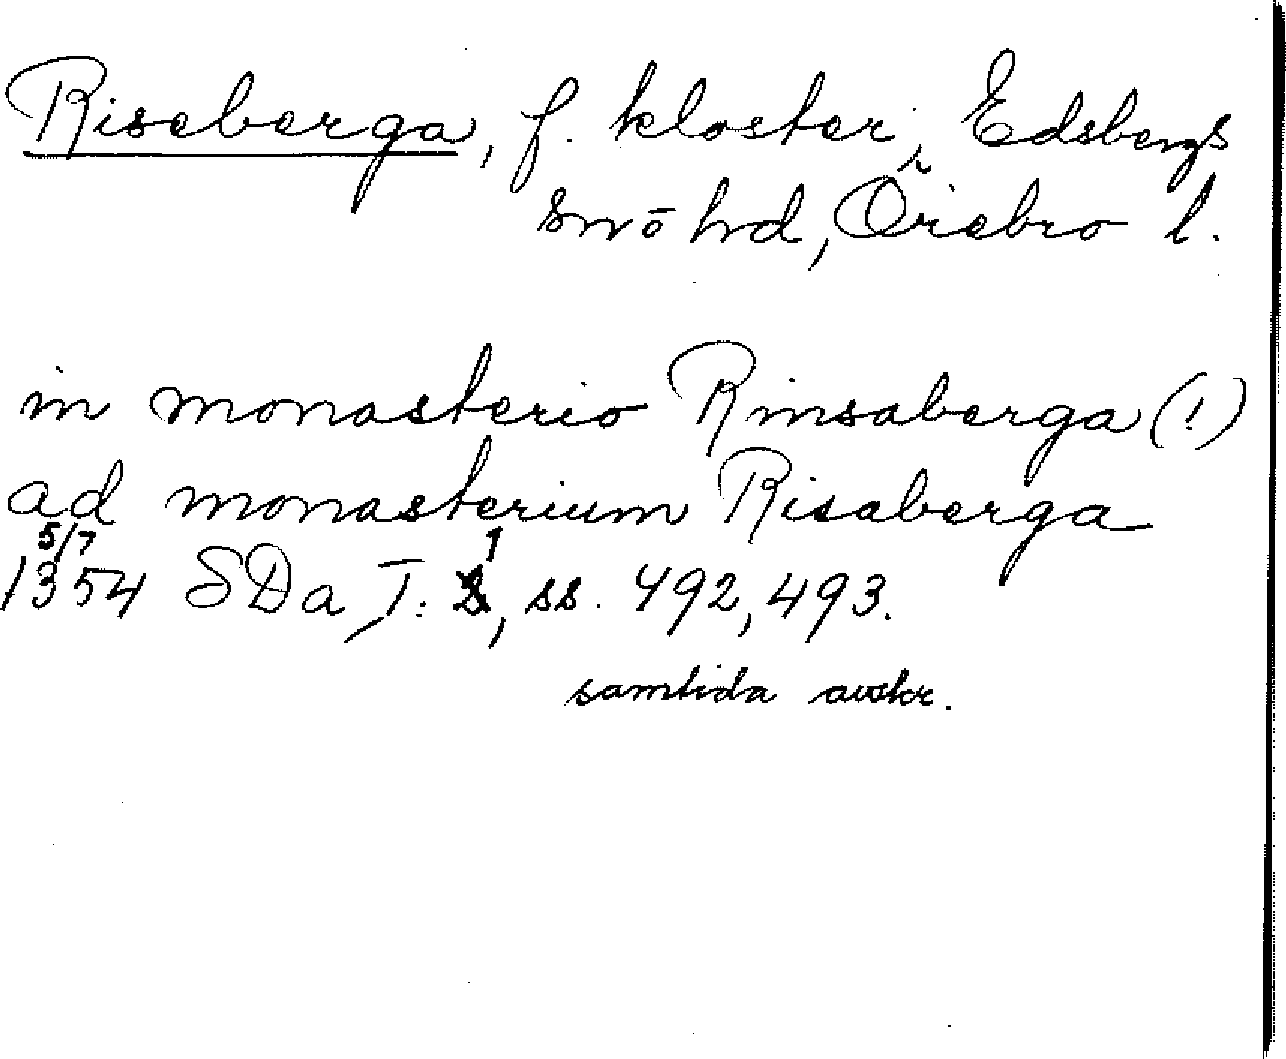 Riseberga, f. kloster i Edsbergs
sn o hd, Örebro l.
in monasterio Rinsaberga (!)
ad monasterium Risaberga
5/7
1354 SDa I: 1, ss. 492, 493.
samtida avskr.